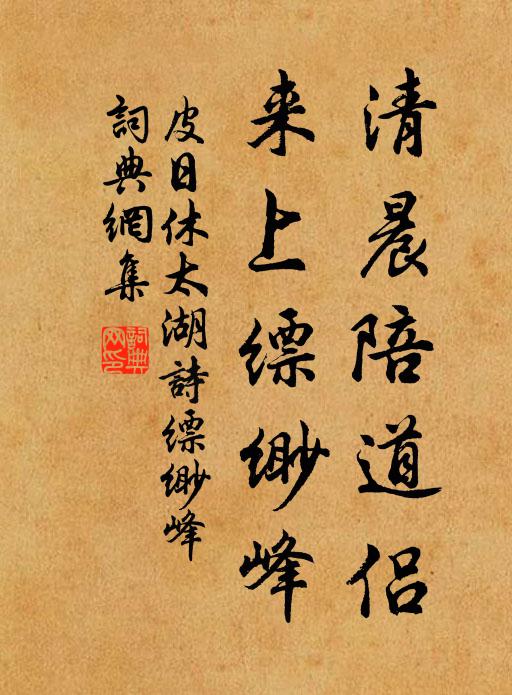 清晨陪道侣
来上缥缈峰
皮日休太湖詩缥缈峰
詞典網集
詞典
网印